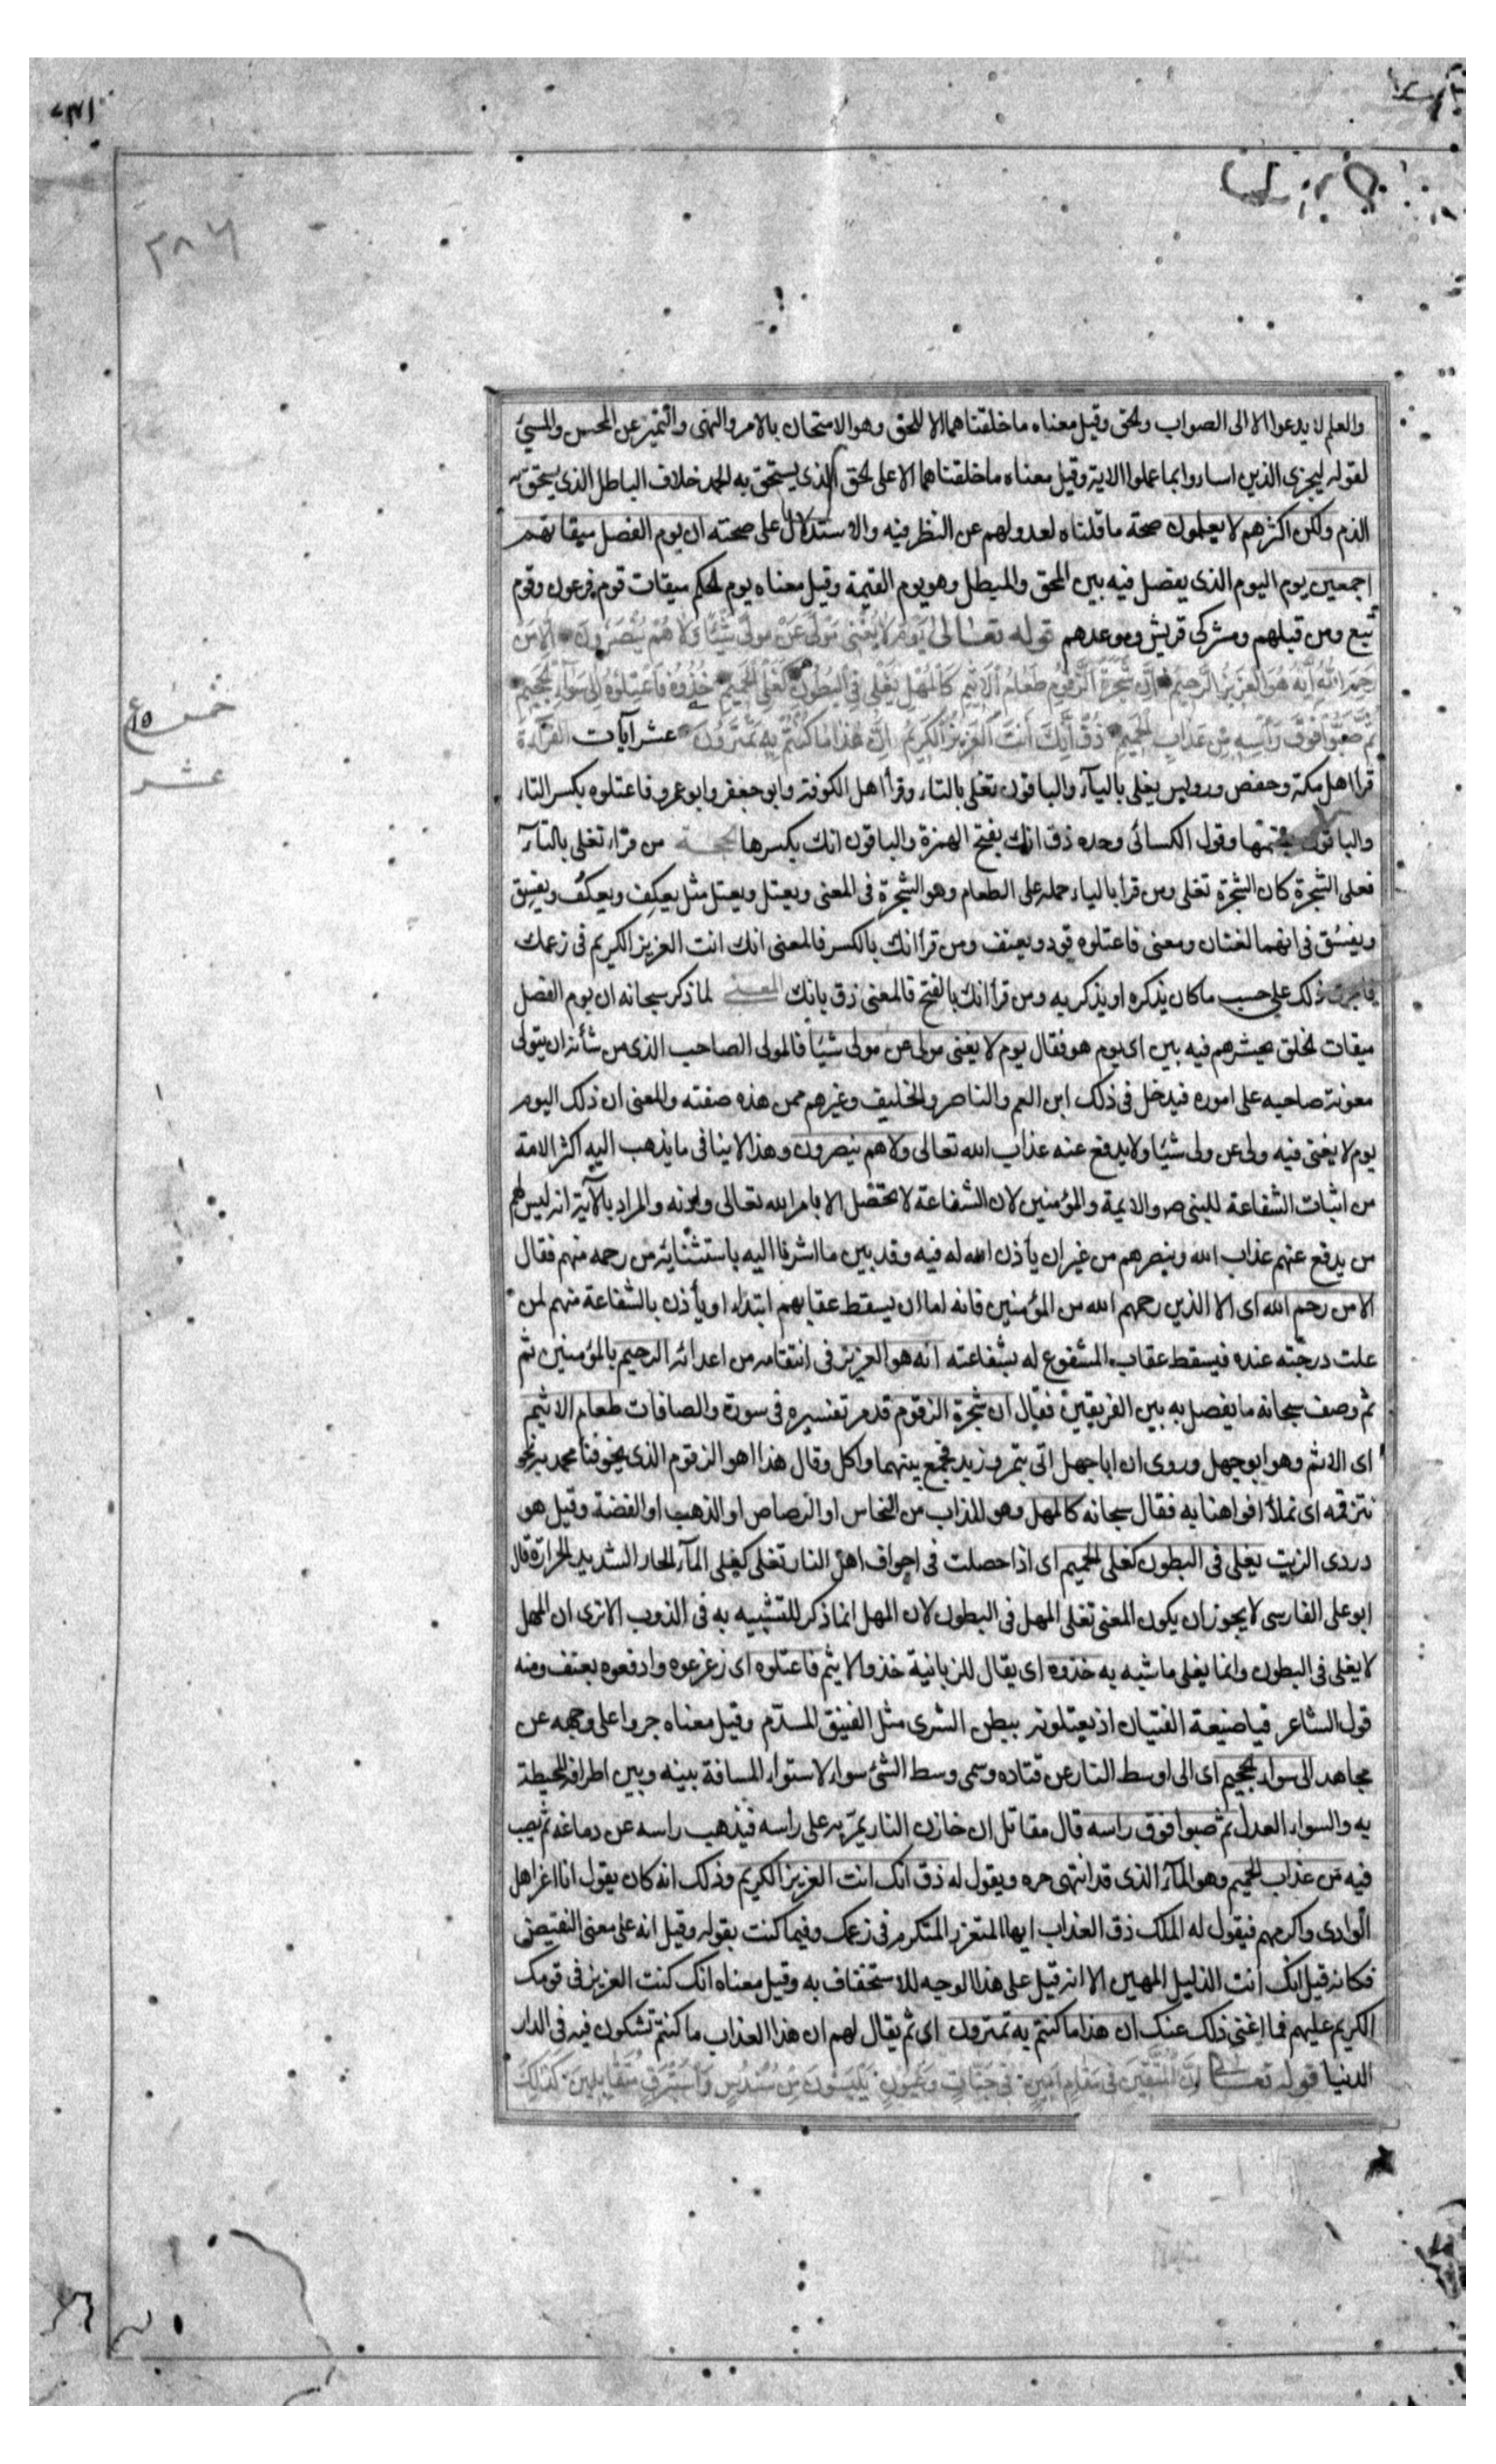 ٣٨٦
والعلم لا يدعوا الا الى الصواب والحق وقيل معناه ما خلقناهما الا للحق وهو الامتحان بالامر والنهى والتميز عن المحسن والمسيئ
لقوله ليجزى الذين اساءوا بما عملوا الاية وقيل معناه ما خلقناهما الا على الحق الذى يستحق به الحمد خلاف الباطل الذى يستحق به
الذم ولكن اكثرهم لا يعلمون صحة ما قلناه لعدولهم عن النظر فيه والاستدلال على صحته ان يوم الفصل ميقاتهم
اجمعين يوم اليوم الذى يفصل فيه بين المحق والمبطل وهو يوم القيمة وقيل معناه يوم الحكم ميقات قوم فرعون وقوم
تبع ومن قبلهم ومشركى قريش وموعدهم قوله تعالى يَوْمَ لَا يُغْنِى مَوْلًى عَنْ مَوْلًى شَيْئًا وَلَا هُمْ يُنْصَرُونَ اِلَّا مَنْ
رَحِمَ اللَّهُ اِنَّهُ هُوَ الْعَزِيزُ الرَّحِيمُ اِنَّ شَجَرَةَ الزَّقُّومِ طَعَامُ الْاَثِيمِ كَالْمُهْلِ يَغْلِى فِى الْبُطُونِ كَغَلْىِ الْحَمِيمِ خُذُوهُ فَاعْتِلُوهُ اِلَى سَوَآءِ الْجَحِيمِ
ثُمَّ صُبُّوا فَوْقَ رَأْسِهِ مِنْ عَذَابِ الْحَمِيمِ ذُقْ اِنَّكَ اَنْتَ الْعَزِيزُ الْكَرِيمُ اِنَّ هَذَا مَا كُنْتُمْ بِهِ تَمْتَرُونَ عشر آيات القراءة
خمس ع١٥
عشر
قرأ اهل مكة وحفص ورويس يغلى باليآء والباقون تغلى بالتاء وقرأ اهل الكوفة وابو جعفر وابو عمرو فاعتلوه بكسر التاء
والباقون بضمها وقول الكسائى وحده ذق انك بفتح الهمزة والباقون انك بكسرها الحجة من قراء تغلى بالتآء
فعلى الشجرة كان الشجرة تغلى ومن قرا بالياء حمله على الطعام وهو الشجرة فى المعنى ويعتل ويعتل مثل يعكِف ويعكُف ويفسِق
ويفسُق فى انهما لغتان ومعنى فاعتلوه قودو بعنف ومن قرأ انك بالكسر فالمعنى انك انت العزيز الكريم فى زعمك
فاجرى ذلك على حسب ما كان يذكره او يذكر به ومن قرا انك بالفتح فالمعنى ذق بانك المعنى لما ذكر سبحانه ان يوم الفصل
ميقات الخلق يحيشرهم فيه بين اى يوم هو فقال يوم لا يغنى مولى عن مولى شيئا فالمولى الصاحب الذى من شأنه ان يتولى
معونة صاحبه على اموره فيدخل فى ذلك ابن العم والناصر والحليف وغيرهم ممن هذه صفته والمعنى ان ذلك اليوم
يوم لا يغنى فيه ولى عن ولى شيئا ولا يدفع عنه عذاب الله تعالى ولا هم ينصرون وهذا لا ينافى ما يذهب اليه اكثر الامة
من اثبات الشفاعة للنبى ص والايمة والمؤمنين لان الشفاعة لا تحصل الا بامر الله تعالى واذنه والمراد بالآية انه ليس لهم
من يدفع عنهم عذاب الله وينصرهم من غير ان يأذن الله له فيه وقد بين ما اشرفا اليه باستثنائه من رحمه منهم فقال
الا من رحم الله اى الا الذين رحمهم الله من المؤمنين فانه اما ان يسقط عقابهم ابتداء او يأذن بالشفاعة منهم لمن
علت درجته عنده فيسقط عقاب المشفوع له بشفاعته انه هو العزيز فى انتقامه من اعدائه الرحيم بالمؤمنين ثم
ثم وصف سبحانه ما يفصل به بين الفريقين فقال ان شجرة الزقوم قد مر تفسيره فى سورة والصافات طعام الاثيم
اى الاثم وهو ابو جهل وروى ان ابا جهل اتى بتمر وزبد فجمع بينهما واكل وقال هذا هو الزقوم الذى يخوفنا محمد به نحن
نتزقمه اى نملأ افواهنا به فقال سبحانه كالمهل وهو المذاب من النحاس او الرصاص او الذهب او الفضة وقيل هو
دردى الزيت يغلى فى البطون كغلى الحميم اى اذا حصلت فى اجواف اهل النار تغلى كغلى المآء الحار الشديد الحرارة قال
ابو على الفارسى لا يجوز ان يكون المعنى تغلى المهل فى البطون لان المهل انما ذكر للتشبيه به فى الذوب الا ترى ان المهل
لا يغلى فى البطون وانما يغلى ما شبه به خذوه اى يقال للزبانية خذوا الاثيم فاعتلوه اى زعزعوه وادفعوه بعنف ومنه
قول الشاعر فيا ضيعة الفتيان اذ يعتلونه ببطن الشرى مثل الفنيق المسدم وقيل معناه جروا على وجهه عن
مجاهد الى سواء الجحيم اى الى اوسط النار عن قتاده وسمى وسط الشئ سواء لاستواء المسافة بينه وبين اطرافه المحيطة
به والسواء العدل ثم صبوا فوق راسه قال مقاتل ان خازن النار يمر به على راسه فيذهب راسه عن دماغه ثم يصب
فيه من عذاب الحميم وهو المآء الذى قد انتهى حره ويقول له ذق انك انت العزيز الكريم وذلك انه كان يقول انا اعز اهل
الوادى واكرمهم فيقول له الملك ذق العذاب ايها المتعزز المتكرم فى زعمك وفيما كنت بقوله وقيل انه على معنى النقيض
فكانه قيل انك انت الذليل المهين الا انه قيل على هذا الوجه للاستخفاف به وقيل معناه انك كنت العزيز فى قومك
الكريم عليهم فما اغنى ذلك عنك ان هذا ما كنتم به تمترون اى ثم يقال لهم ان هذا العذاب ما كنتم تشكون فيه فى الدار
الدنيا قوله تعالى اِنَّ الْمُتَّقِينَ فِى مَقَامٍ اَمِينٍ فِى جَنَّاتٍ وَعُيُونٍ يَلْبَسُونَ مِنْ سُنْدُسٍ وَاِسْتَبْرَقٍ مُتَقَابِلِينَ كَذَلِكَ